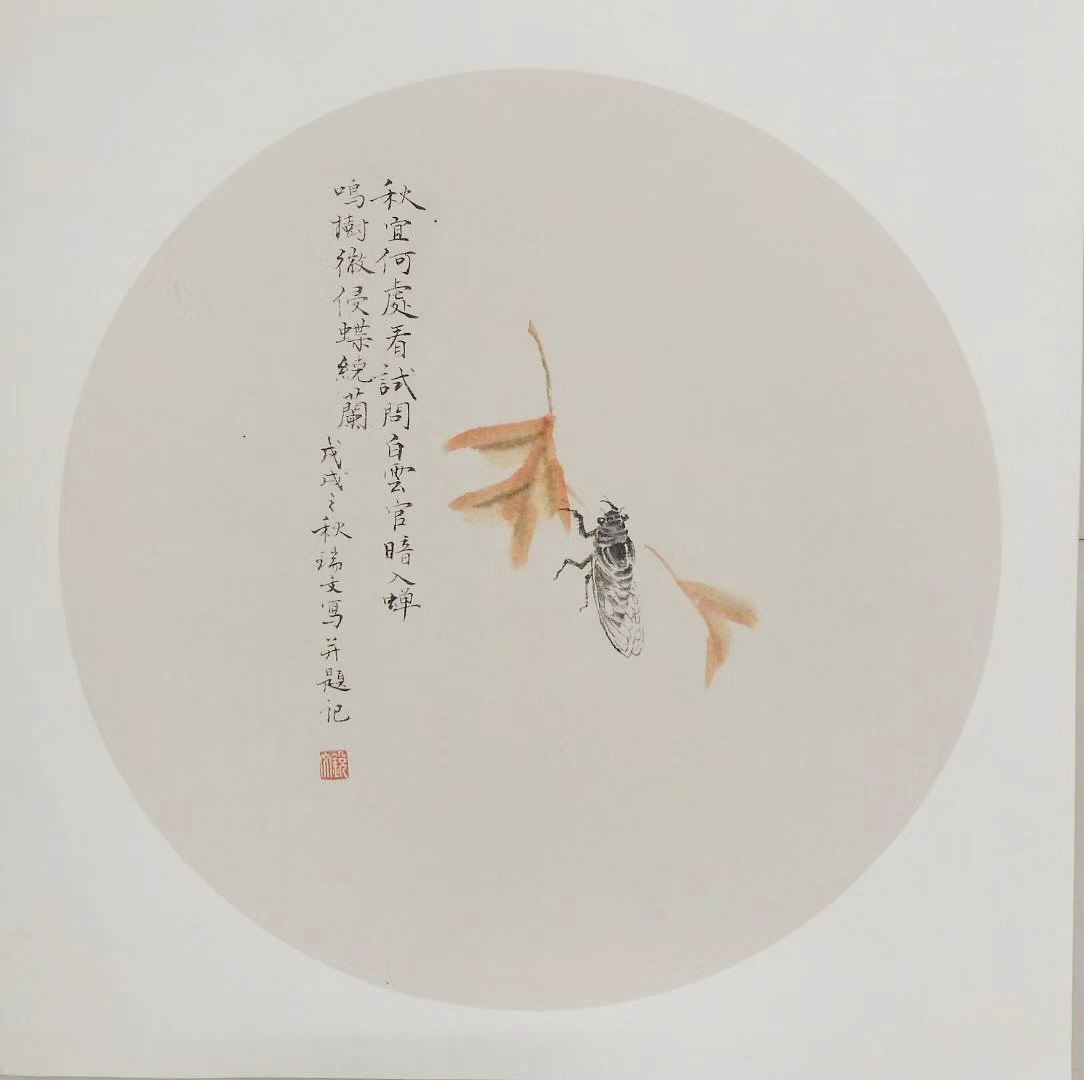 秋宜何處看試問白雲官暗入蝉
鳴樹微侵蝶繞蘭
戊戌之秋瑞文寫并題記